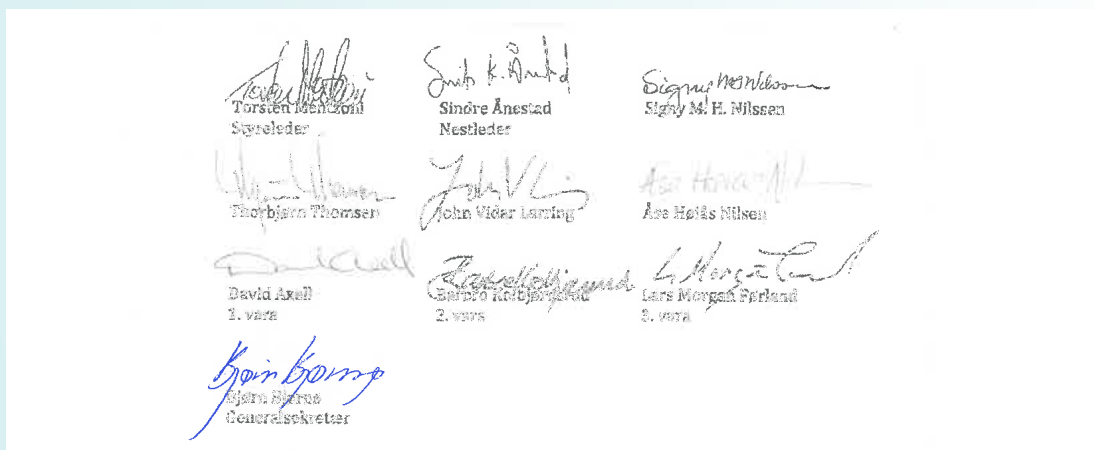 Torsten Mentzoni
Styreleder
Sindre Ånestad
Nestleder
Signy M. H. Nilssen
Thorbjørn Thomsen
John Vidar Larring
Åse Holås Nilsen
David Axell
1. vara
Barbro Kolbjørnsrud
2. vara
Lars Morgan Førland
3. vara
Bjørn Bjørnø
Generalsekretær